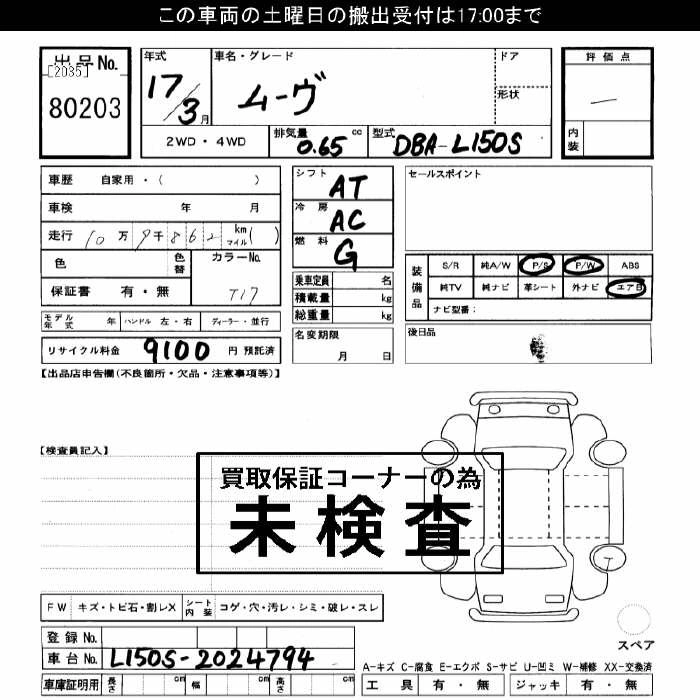 この車両の土曜日の搬出受付は17:00まで
出品No. 年式 車名・グレード ドア 評価点
[2035]
80203 17/3月 ムーヴ 形状 —
2WD・4WD 排気量 0.65 cc 型式 DBA-L150S 内装
車歴 自家用・( ) シフト AT セールスポイント
車検 年 月 冷房 AC
走行 10万9千862 km マイル( ) 燃料 G
色 色替 カラーNo. 装備品 S/R 純A/W P/S P/W ABS
保証書 有・無 T17 乗車定員 名 純TV 純ナビ 革シート 外ナビ エアB
積載量 kg ナビ型番:
モデル年式 年 ハンドル 左・右 ディーラー・並行 総重量 kg
リサイクル料金 9100 円 預託済 名変期限 月 日 後日品
【出品店申告欄(不良箇所・欠品・注意事項等)】
【検査員記入】
買取保証コーナーの為
未検査
FW キズ・トビ石・割レX シート内装 コゲ・穴・汚レ・シミ・破レ・スレ
登録No. スペア
車台No. L150S-2024794 A-キズ C-腐食 E-エクボ S-サビ U-凹ミ W-補修 XX-交換済
車庫証明用 長さ cm 幅 cm 高さ cm 工具 有・無 ジャッキ 有・無